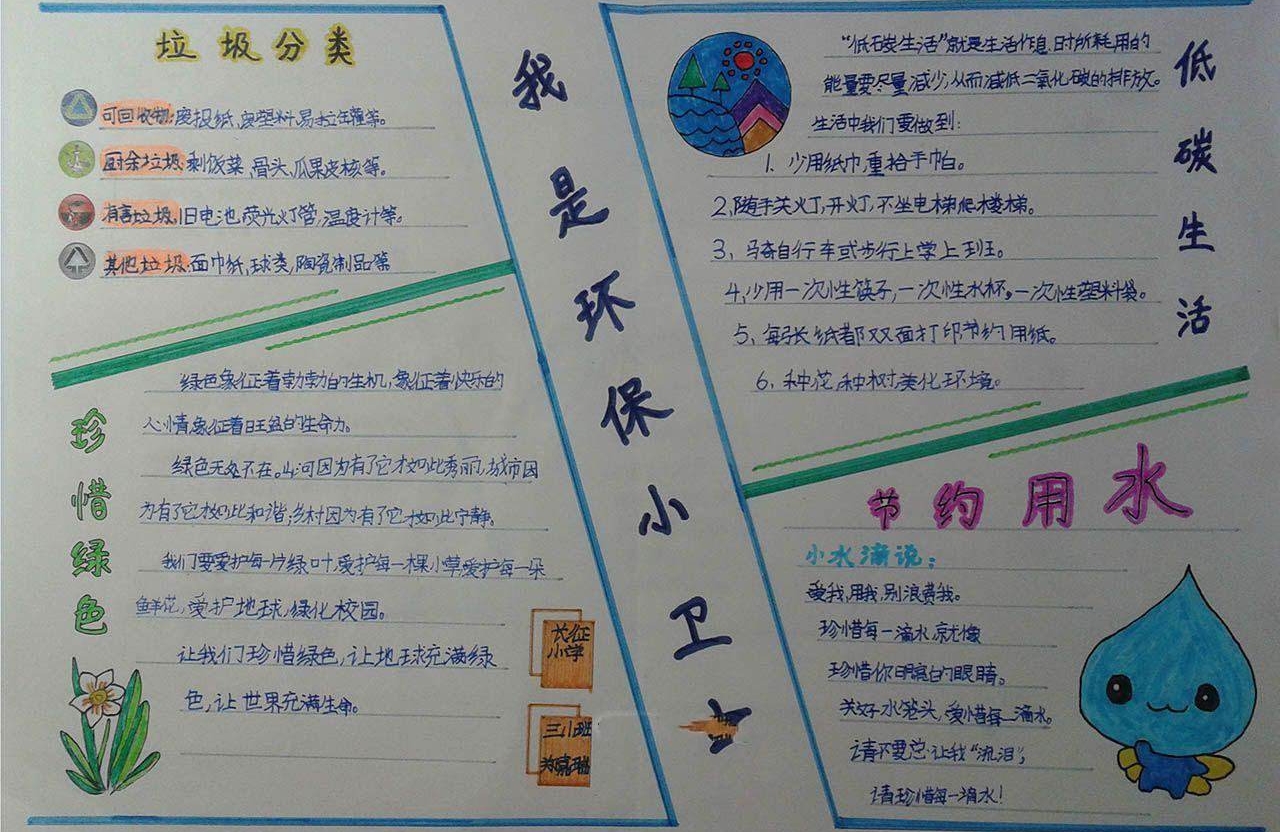 垃圾分类
可回收物:废报纸,废塑料,易拉罐等。
厨余垃圾:剩饭菜,骨头,瓜果皮核等。
有害垃圾:旧电池,荧光灯管,温度计等。
其他垃圾:面巾纸,球类,陶瓷制品等
珍惜绿色
绿色象征着勃勃的生机,象征着快乐的
心情象征着旺盛的生命力。
绿色无处不在。山河因为有了它才如此秀丽,城市因
为有了它才如此和谐;乡村因为有了它才如此宁静。
我们要爱护每一片绿叶,爱护每一棵小草爱护每一朵
鲜花,爱护地球,绿化校园。
让我们珍惜绿色,让地球充满绿
色,让世界充满生命。
长征
小学
三小班
我是环保小卫士
低碳生活
“低碳生活”就是生活作息时所耗用的
能量要尽量减少,从而减低二氧化碳的排放。
生活中我们要做到:
1、少用纸巾,重拾手帕。
2,随手关灯,开灯,不坐电梯爬楼梯。
3、骑自行车或步行上学上班。
4,少用一次性筷子,一次性水杯,一次性塑料袋。
5、每张纸都双面打印,节约用纸。
6、种花,种树,美化环境。
节约用水
小水滴说:
爱我,用我,别浪费我。
珍惜每一滴水,就像
珍惜你明亮的眼睛。
关好水笼头,爱惜每一滴水。
请不要总让我“流泪”,
请珍惜每一滴水!